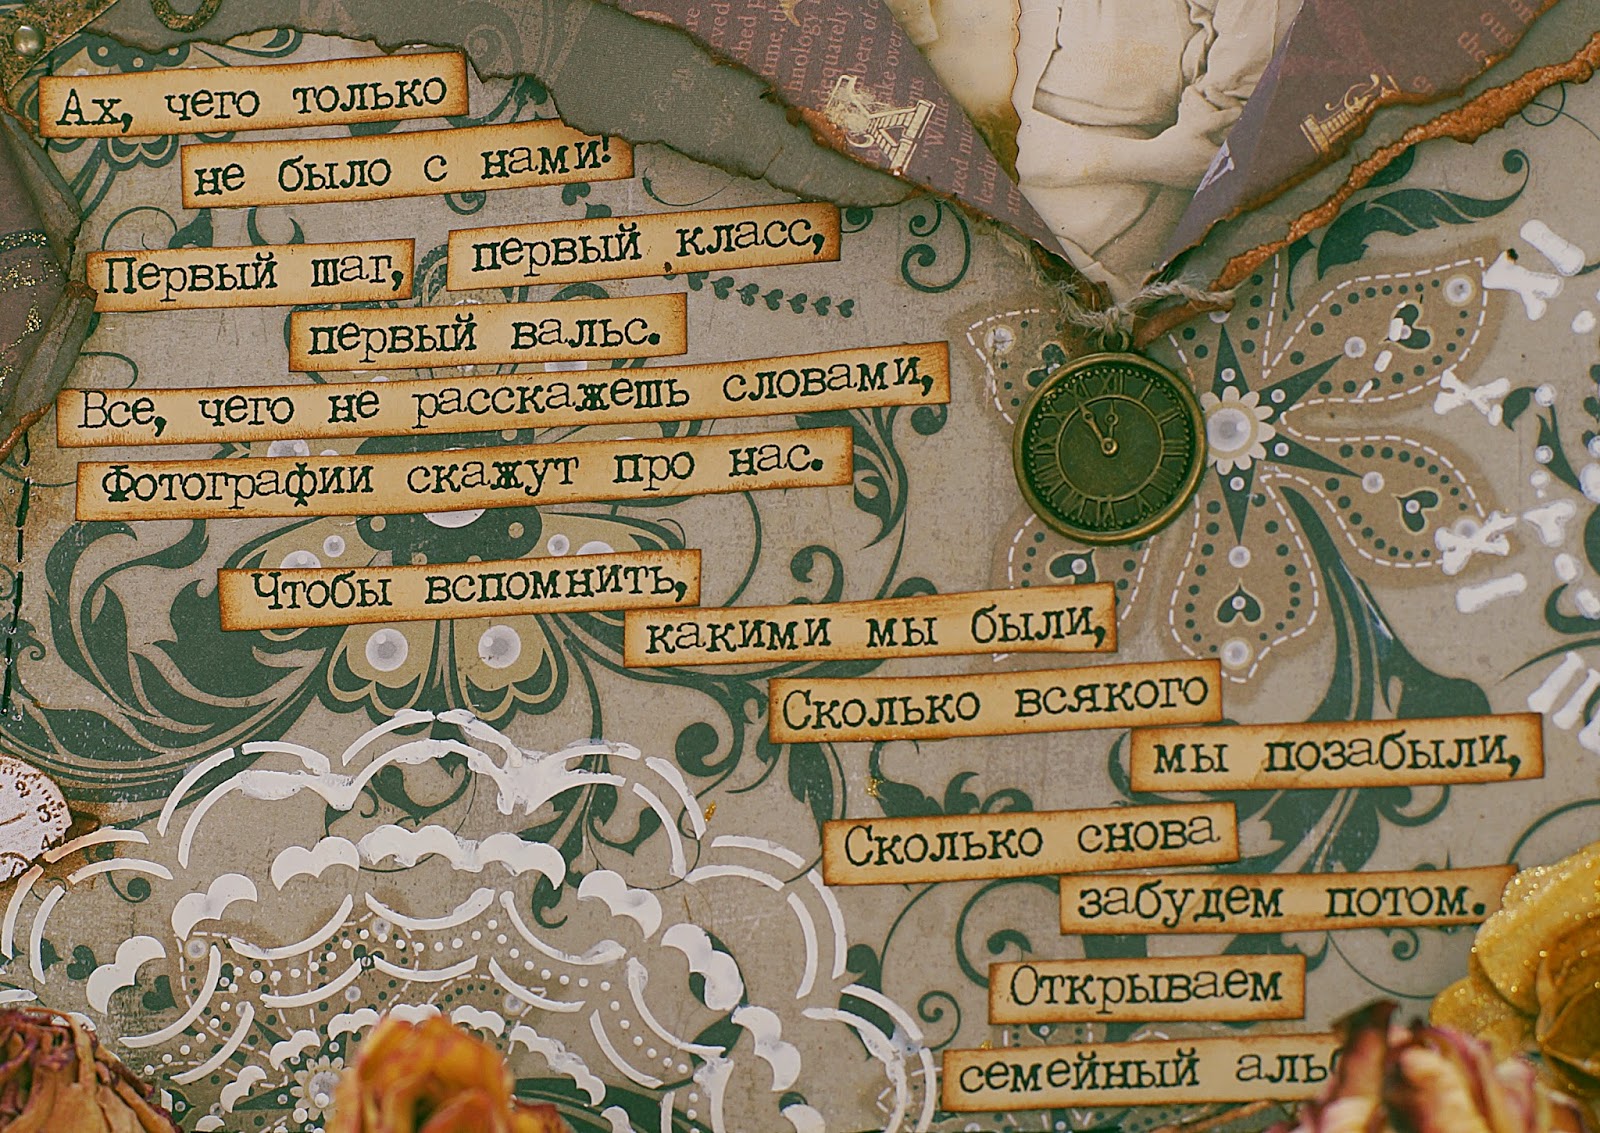 Ах, чего только
не было с нами!
Первый шаг, первый класс,
первый вальс.
Все, чего не расскажешь словами,
Фотографии скажут про нас.
Чтобы вспомнить,
какими мы были,
Сколько всякого
мы позабыли,
Сколько снова
забудем потом.
Открываем
семейный